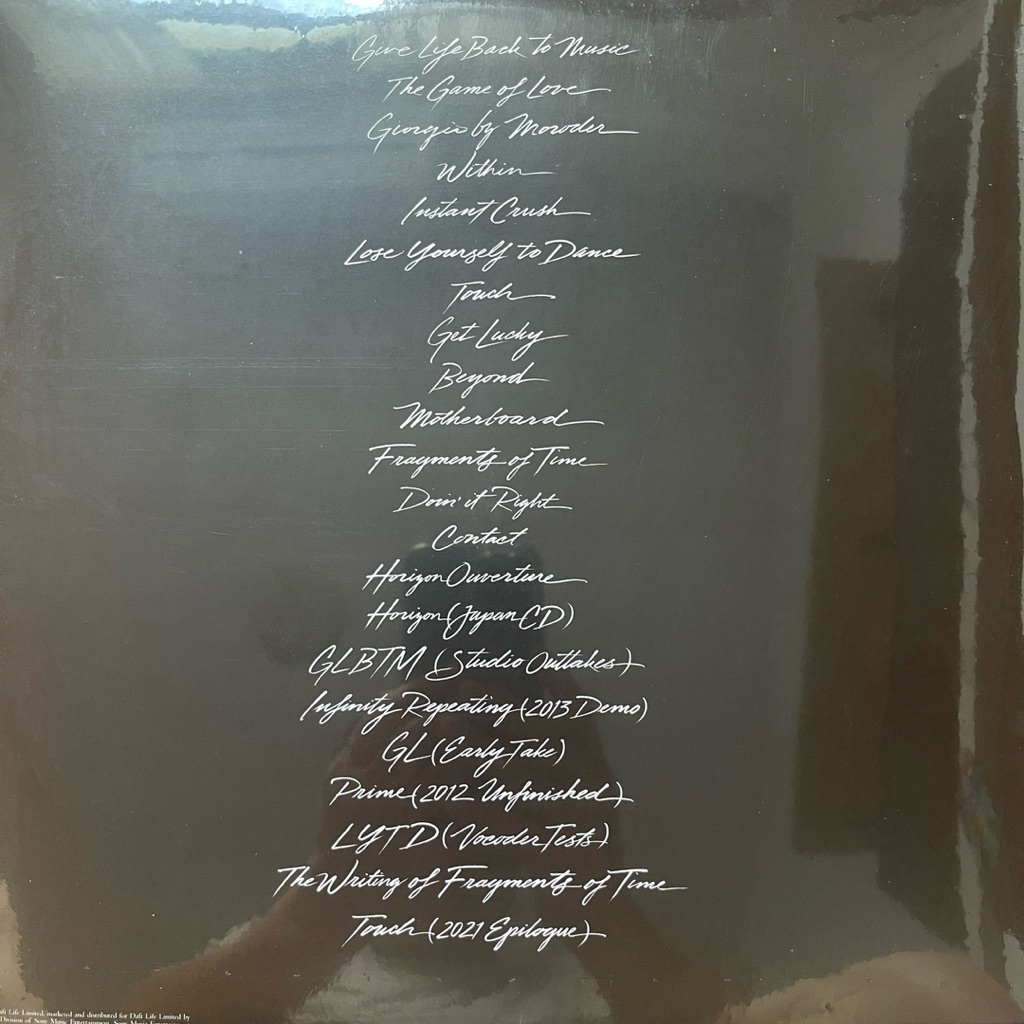 Give Life Back to Music
The Game of Love
Giorgio by Moroder
Within
Instant Crush
Lose Yourself to Dance
Touch
Get Lucky
Beyond
Motherboard
Fragments of Time
Doin' it Right
Contact
Horizon Ouverture
Horizon (Japan CD)
GLBTM (Studio Outtakes)
Infinity Repeating (2013 Demo)
GL (Early Take)
Prime (2012 Unfinished)
LYTD (Vocoder Tests)
The Writing of Fragments of Time
Touch (2021 Epilogue)
Life Limited, marketed and distributed for Daft Life Limited by
Division of Sony Music Entertainment. Sony Music